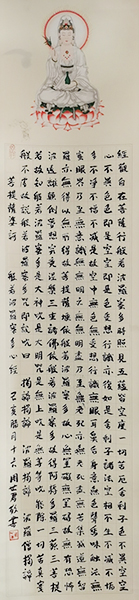 經觀自在菩薩行深般若波羅蜜多時照見五蘊皆空度一切苦厄舍利子色不異空空
心不異色色即是空空即是色受想行識亦復如是舍利子是諸法空相不生不滅不垢
多不淨不增不減是故空中無色無受想行識無眼耳鼻舌身意無色聲香味觸法無
蜜眼界乃至無意識界無無明亦無無明盡乃至無老死亦無老死盡無苦集滅道無
羅智亦無得以無所得故菩提薩埵依般若波羅蜜多故心無罣礙無罣礙故無有恐怖
波遠離顛倒夢想究竟涅槃三世諸佛依般若波羅蜜多故得阿耨多羅三藐三菩提
若故知般若波羅蜜多是大神咒是大明咒是無上咒是無等等咒能除一切苦真實
般不虛故說般若波羅蜜多咒即說咒曰揭諦揭諦 波羅揭諦 波羅僧揭諦
菩提薩婆訶 般若波羅蜜多心經 己亥臘月十六 周君 書